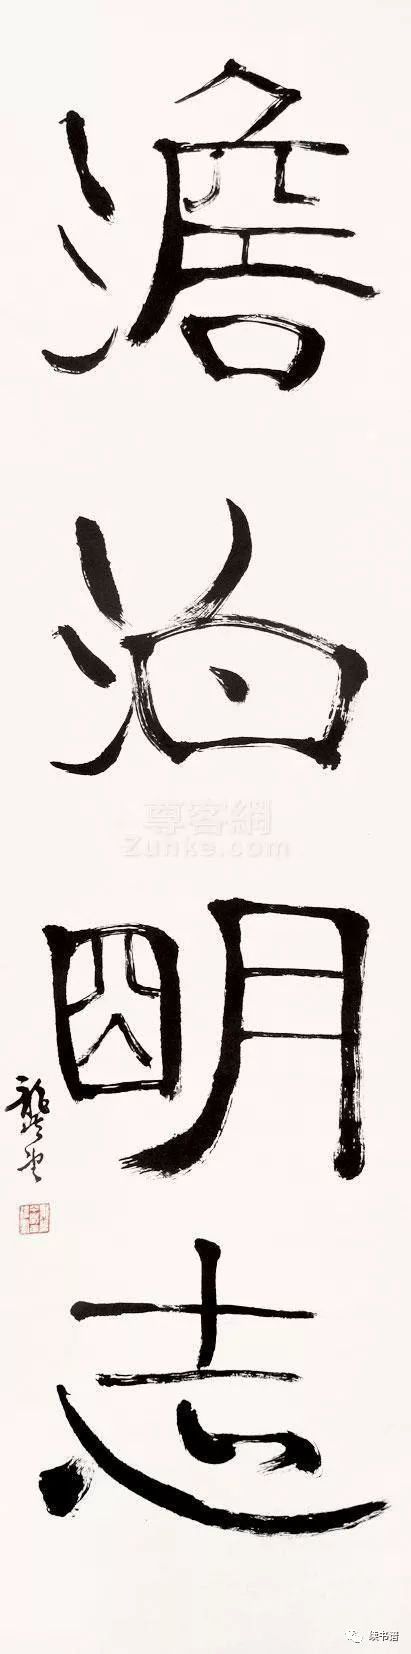 澹泊明志
龔望
尊客網
Zunke.com
续书谱